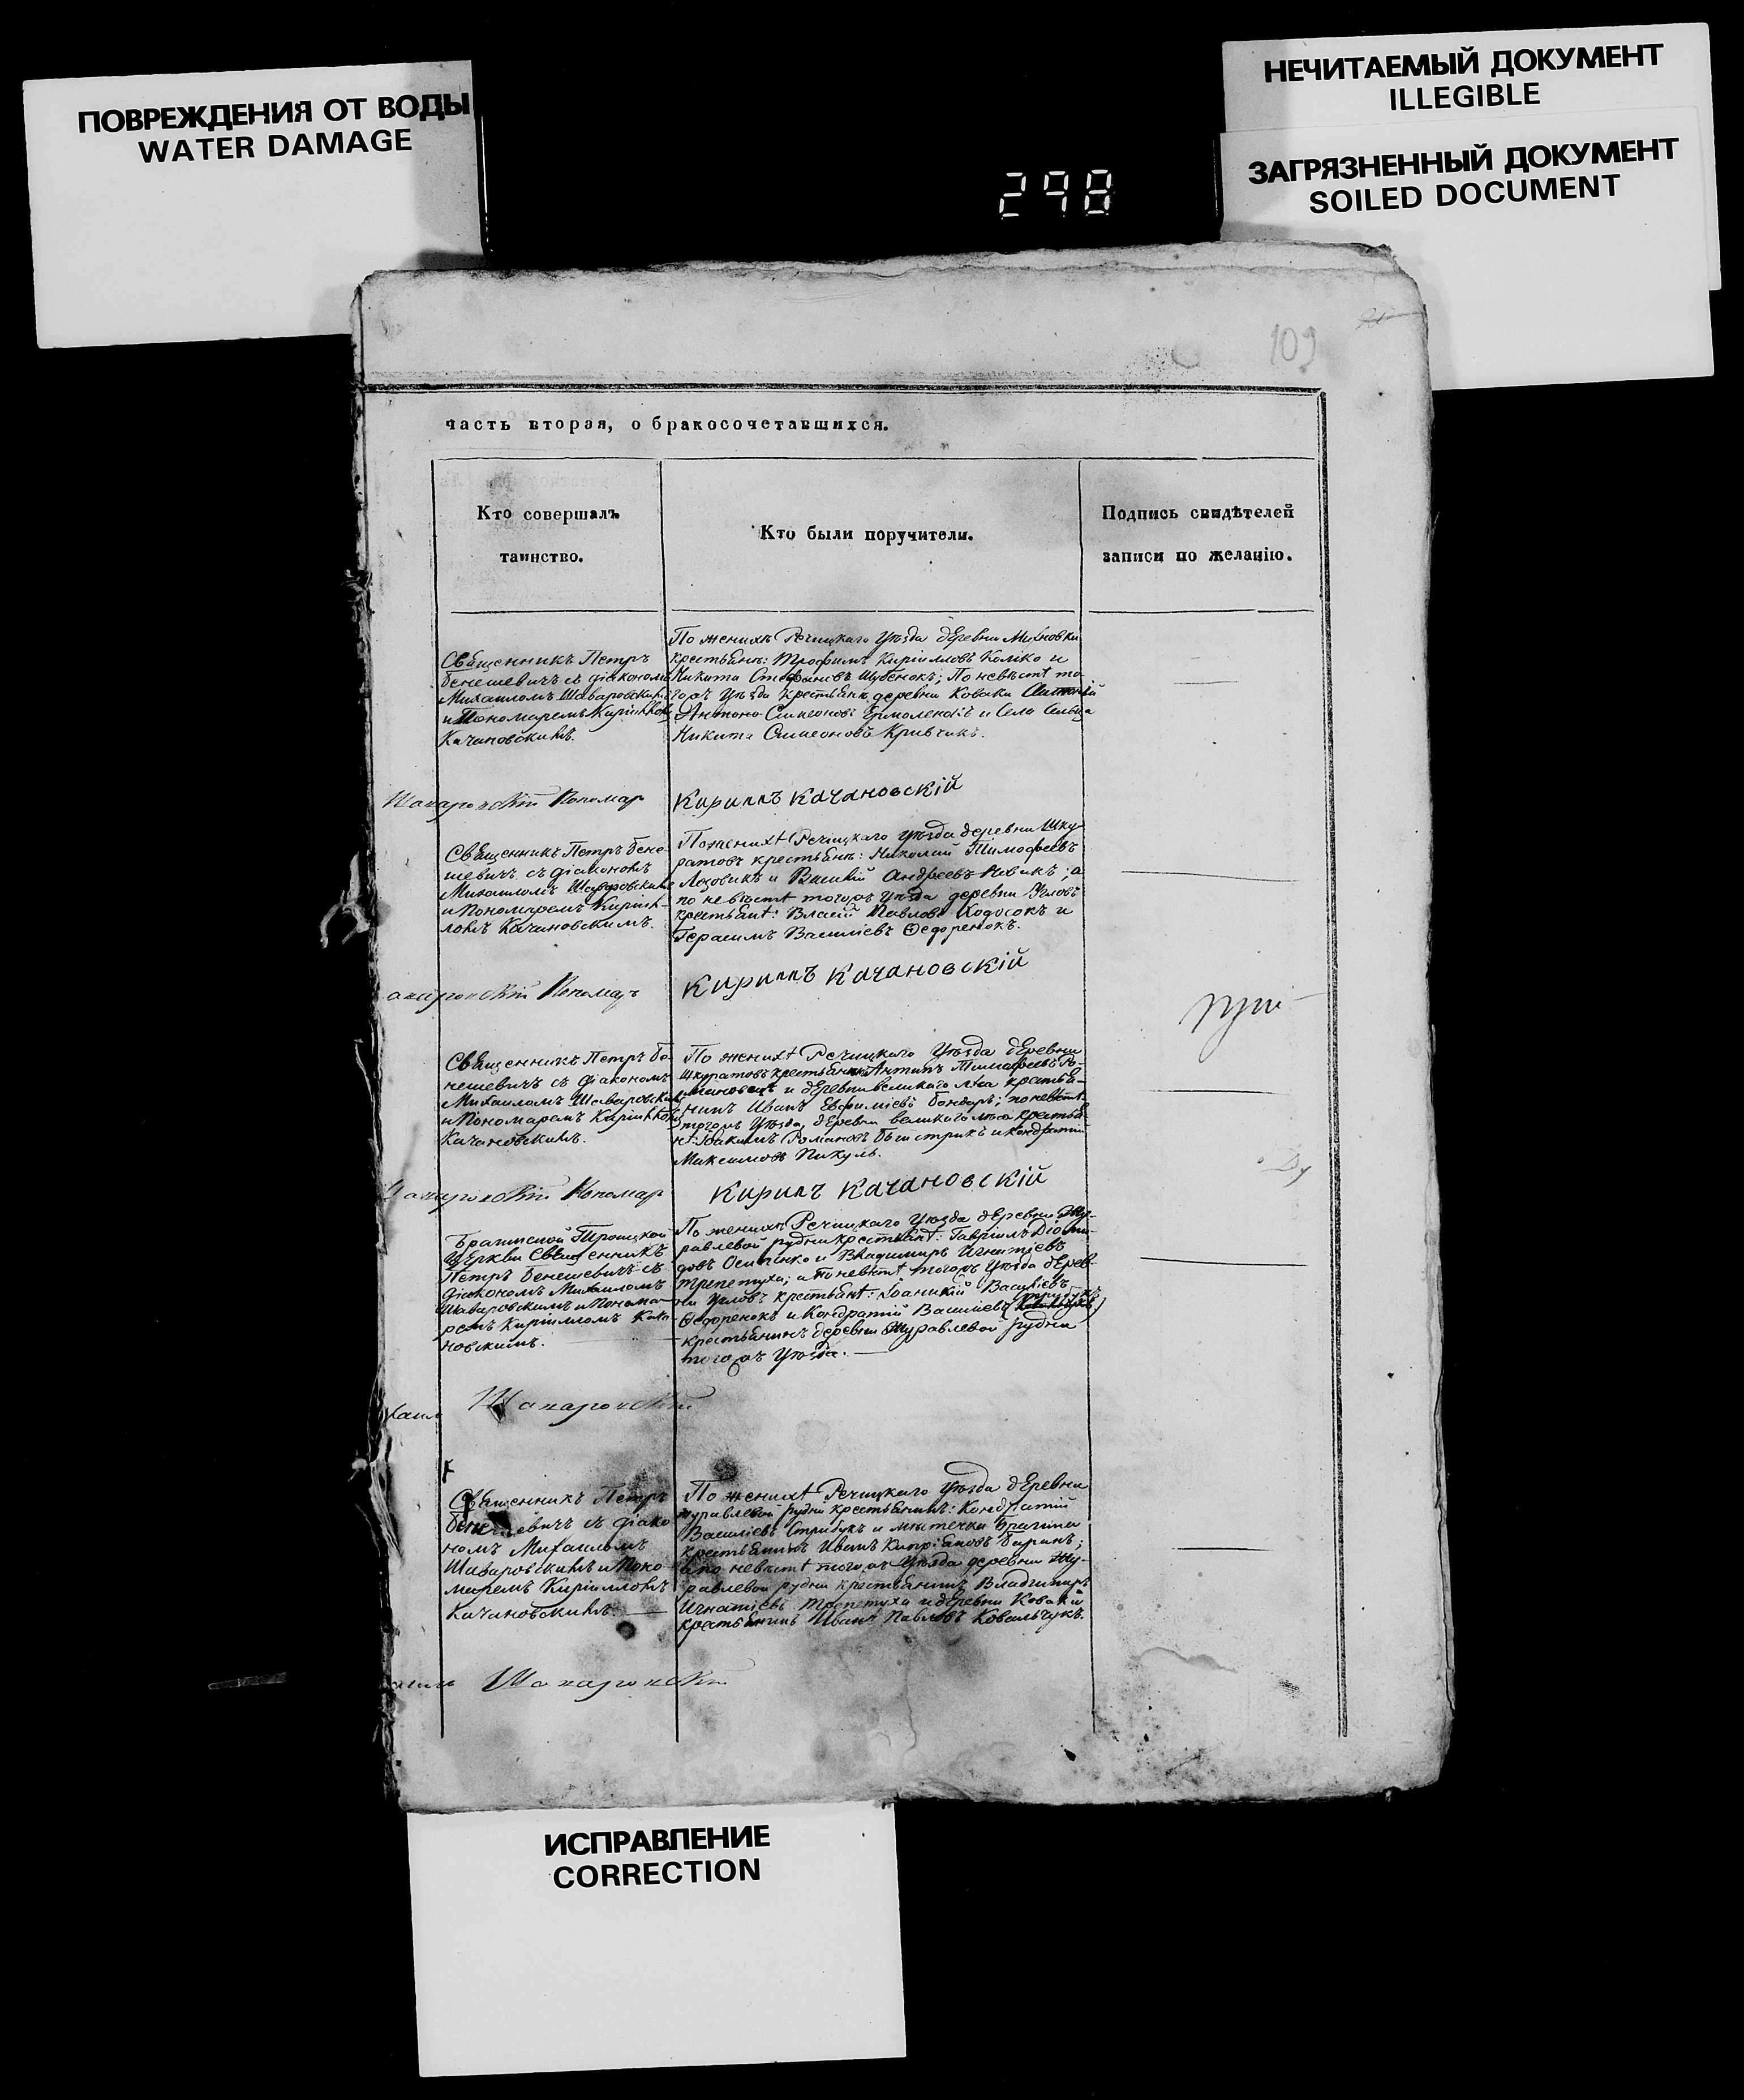 ПОВРЕЖДЕНИЯ ОТ ВОДЫ
WATER DAMAGE
НЕЧИТАЕМЫЙ ДОКУМЕНТ
ILLEGIBLE
ЗАГРЯЗНЕННЫЙ ДОКУМЕНТ
SOILED DOCUMENT
298
109
часть вторая, о бракосочетавшихся.
Кто совершалъ
таинство.
Кто были поручители.
Подпись свидѣтелей
записи по желанію.
Священникъ Петръ
Бенешевичъ съ діакономъ
Михаиломъ Шаваровскимъ
и Пономаремъ Кирилломъ
Качановскимъ.
По женихѣ Речицкаго Уѣзда деревни Михновки
крестьяне: Трофимъ Кирилловъ Колѣко и
Никита Стефановъ Шубенокъ; По невѣстѣ то-
гожъ Уѣзда крестьяне деревни Коваки
Симеоновъ Ермоленокъ и Села Сельца
Никита Симеоновъ Кривчикъ.
Пономар
Кириллъ Качановскій
Священникъ Петръ Бене-
шевичъ съ діакономъ
Михаиломъ Шаваровскимъ
и Пономаремъ Кирил-
ломъ Качановскимъ.
По женихѣ Речицкаго Уѣзда деревни Шку-
ратовъ крестьяне: Николай Тимофеевъ
Лозовикъ и Василій Андреевъ Ревикъ; а
по невѣстѣ тогожъ Уѣзда деревни Угловъ
крестьяне: Власій Павловъ Ходосокъ и
Герасимъ Василіевъ Ѳедоренокъ.
Пономарь
Кириллъ Качановскій
Священникъ Петръ Бе-
нешевичъ съ діакономъ
Михаиломъ Шаваровскимъ
и Пономаремъ Кирилломъ
Качановскимъ.
По женихѣ Речицкаго Уѣзда деревни
Шкуратовъ крестьянинъ Антипъ Тимофеевъ
и деревни Великаго лѣса крестья-
нинъ Иванъ Евфиміевъ Бондарь; по невѣстѣ
тогожъ Уѣзда, деревни великаго лѣса крестья-
не: Іоакимъ Романовъ Быстрикъ и Кондратій
Максимовъ Пикуль.
Пономар
Кирилъ Качановскій
Брагинской Троицкой
Церкви Священникъ
Петръ Бенешевичъ съ
діакономъ Михаиломъ
Шаваровскимъ и Понома-
ремъ Кирилломъ Кача-
новскимъ.
По женихѣ Речицкаго Уѣзда деревни Жу-
равлевой рудни крестьяне: Гавріилъ Діоми-
довъ Осипенко и Владимиръ Игнатіевъ
Трепетуха; а по невѣстѣ тогожъ Уѣзда дерев-
ни Угловъ крестьяне: Іоаникій Василіевъ
Ѳедоренокъ и Кондратій Василіевъ Стрибукъ
крестьянинъ деревни Журавлевой рудни
тогожъ Уѣзда.
Священникъ Петръ
Бенешевичъ съ діако-
номъ Михаиломъ
Шаваровскимъ и Поно-
маремъ Кирилломъ
Качановскимъ.
По женихѣ Речицкаго Уѣзда деревни
Журавлевой рудни крестьянинъ: Кондратій
Василіевъ Стрибукъ и мѣстечка Брагина
крестьянинъ Иванъ Кипріановъ Баринъ;
а по невѣстѣ тогожъ Уѣзда деревни Жу-
равлевой рудни крестьянинъ Владимиръ
Игнатіевъ Трепетуха и деревни Ковакій
крестьянинъ Иванъ Павловъ Ковальчукъ.
ИСПРАВЛЕНИЕ
CORRECTION